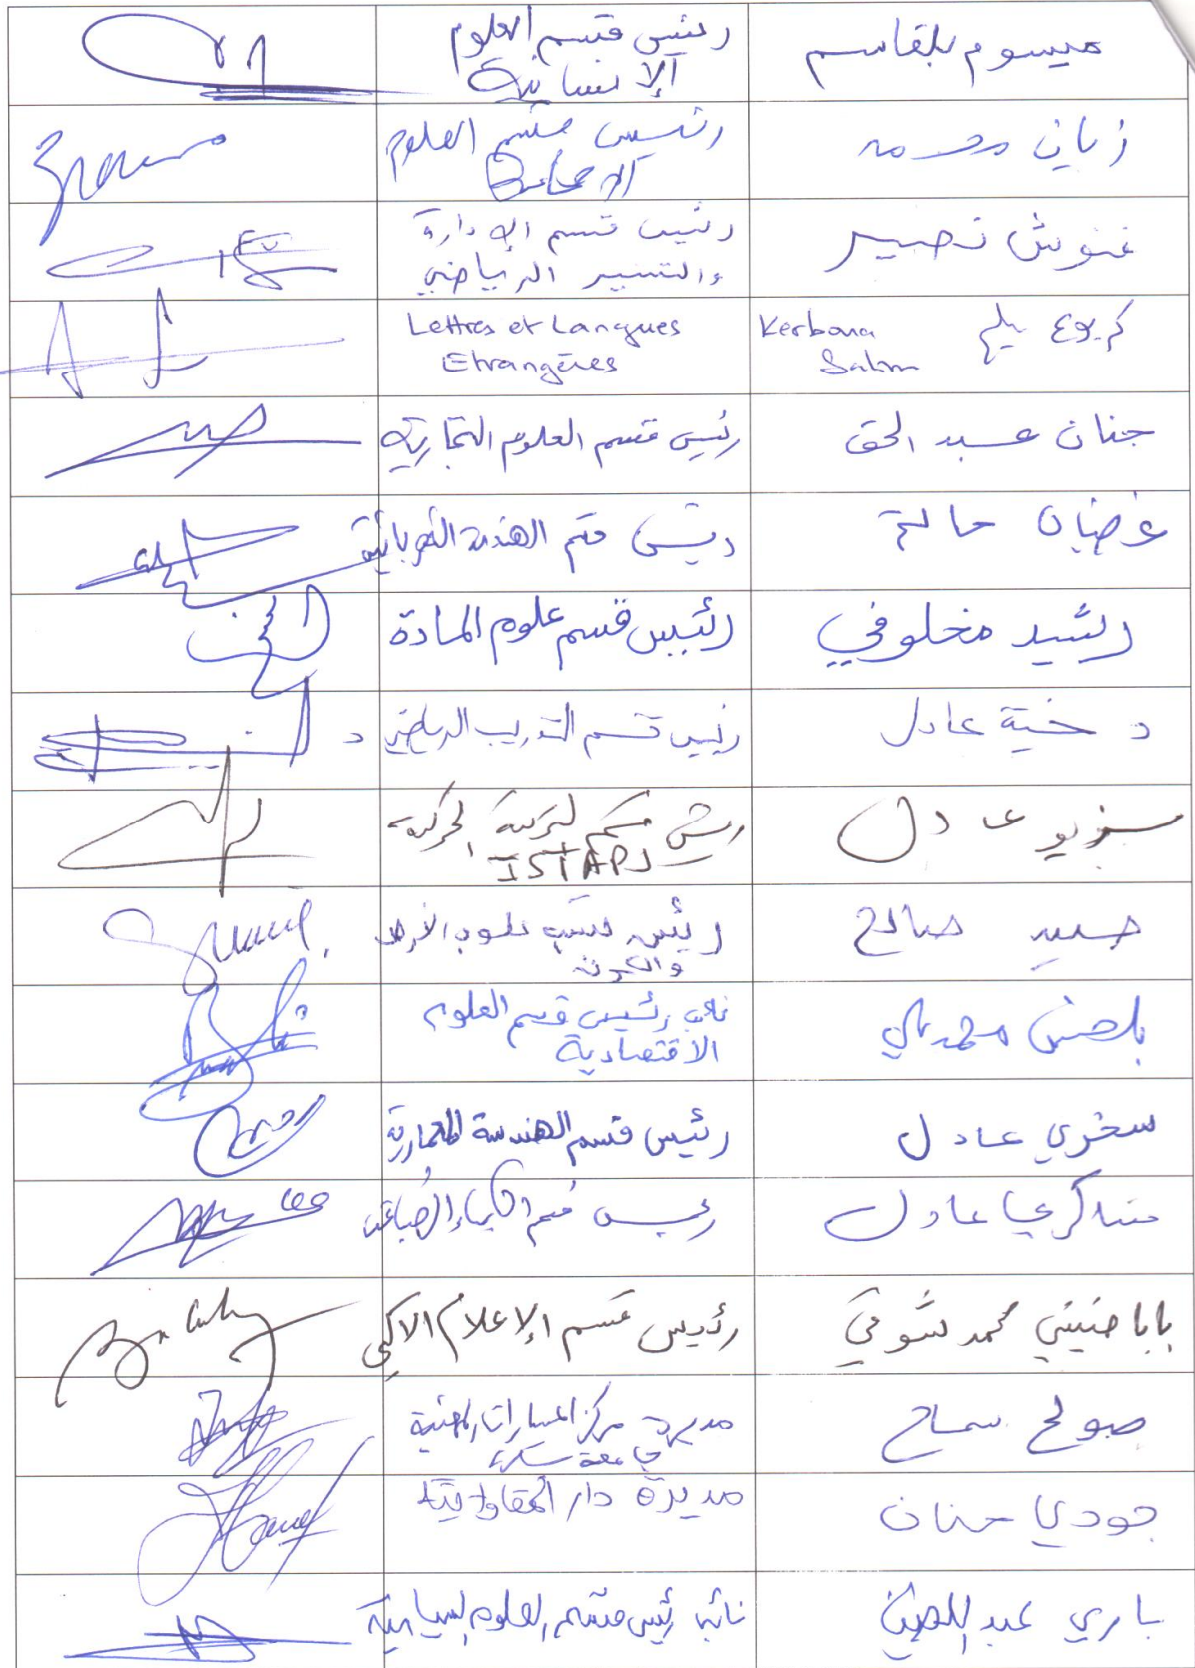 ميسوم بلقاسم
رئيس قسم العلوم
الإنسانية
زيان محمد
رئيس قسم العلوم
غنوش نصير
رئيس قسم الإدارة
والتسيير الرياضي
كربوع
Kerboua
Salim
Lettres et Langues
Etrangères
جنان عبد الحق
رئيس قسم العلوم التجارية
غضبان
رئيس قسم الهندسة الكهربائية
رشيد مخلوفي
رئيس قسم علوم المادة
د خنية عادل
رئيس قسم التدريب الرياضي
د
عادل
رئيس قسم التربية الحركية
ISTAPS
صالح
رئيس قسم علوم الأرض
والكون
محمد
نائب رئيس قسم العلوم
الاقتصادية
سخري عادل
رئيس قسم الهندسة المعمارية
شاكري عادل
رئيس قسم الكيمياء الصناعية
بابا حنيني محمد شوقي
رئيس قسم الإعلام الآلي
صولح سماح
مديرة مركز المسارات المهنية
جامعة بسكرة
جودي حنان
مديرة دار المقاولاتية
باري عبد اللطيف
نائب رئيس قسم العلوم السياسية